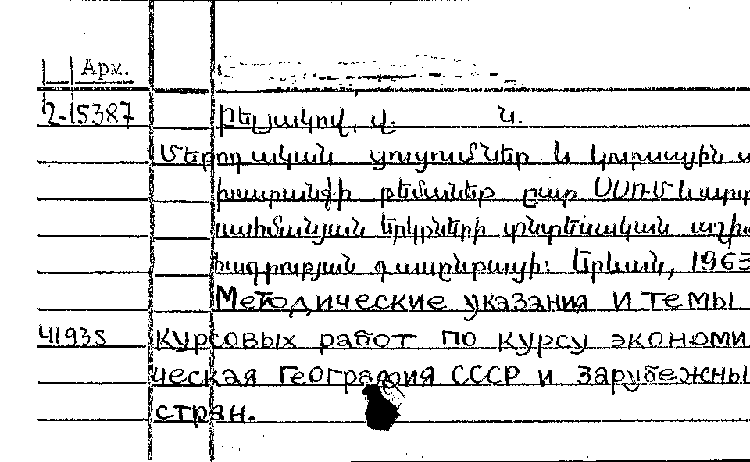 Арм.
2-15387 Բելյակով, Վ. Ն.
Մեթոդական ցուցումներ և կուրսային
թեմաներ ըստ ՍՍՌՄ և արտ
սահմանյան երկրների տնտեսական աշխ
հագրության դասընթացի: Երևան, 1963
Методические указания и темы
41935 курсовых работ по курсу экономи
ческая География СССР и зарубежны
стран.